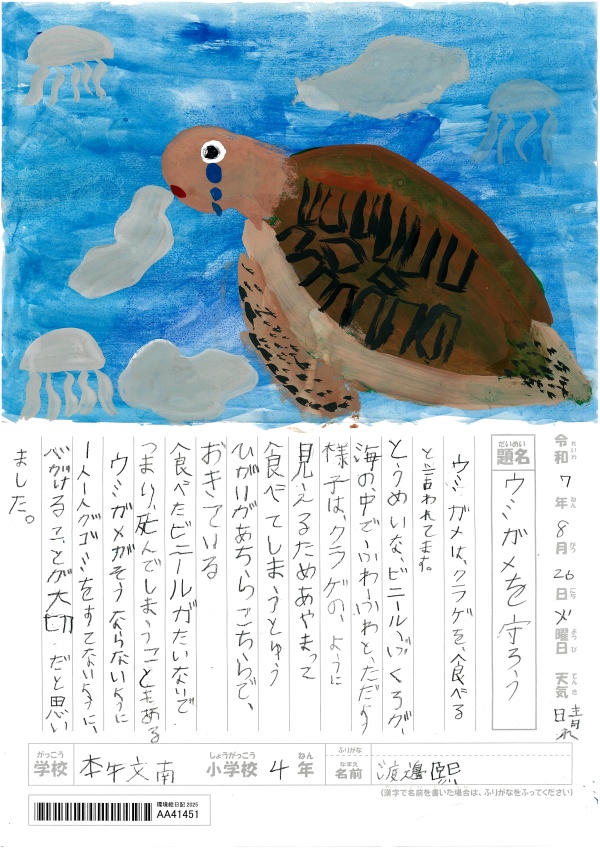 令和7年8月26日火曜日 天気 晴れ
れいわ ねん がつ にち よう び てんき
だいめい
題名 ウミガメを守ろう
ウミガメは、クラゲを、食べる
と言われてます。
とうめいな、ビニールぶくろが、
海の、中で、ふわーふわと、ただよう
様子は、クラゲの、ように
見えるためあやまって
食べてしまうとゆう
ひがいがあちらこちらで、
おきている
食べたビニールがたいないで
つまり、死んでしまうこともある
ウミガメがそうならないように
一人一人がゴミをすてないように、
心がけることが大切だと思い
ました。
がっこう しょうがっこう ねん ふりがな
学校 本牧南 小学校 4年 なまえ 名前 渡邊
(漢字で名前を書いた場合は、ふりがなをふってください)
環境絵日記 2025
AA41451